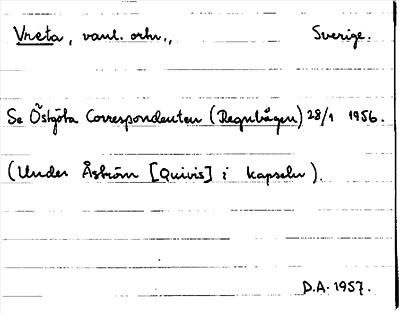 Vreta, vanl. orkn., Sverige.
Se Östgöta Correspondenten (Regnbågen) 28/1 1956.
(Under Åström [Quivis] i kapseln).
D.A. 1957.